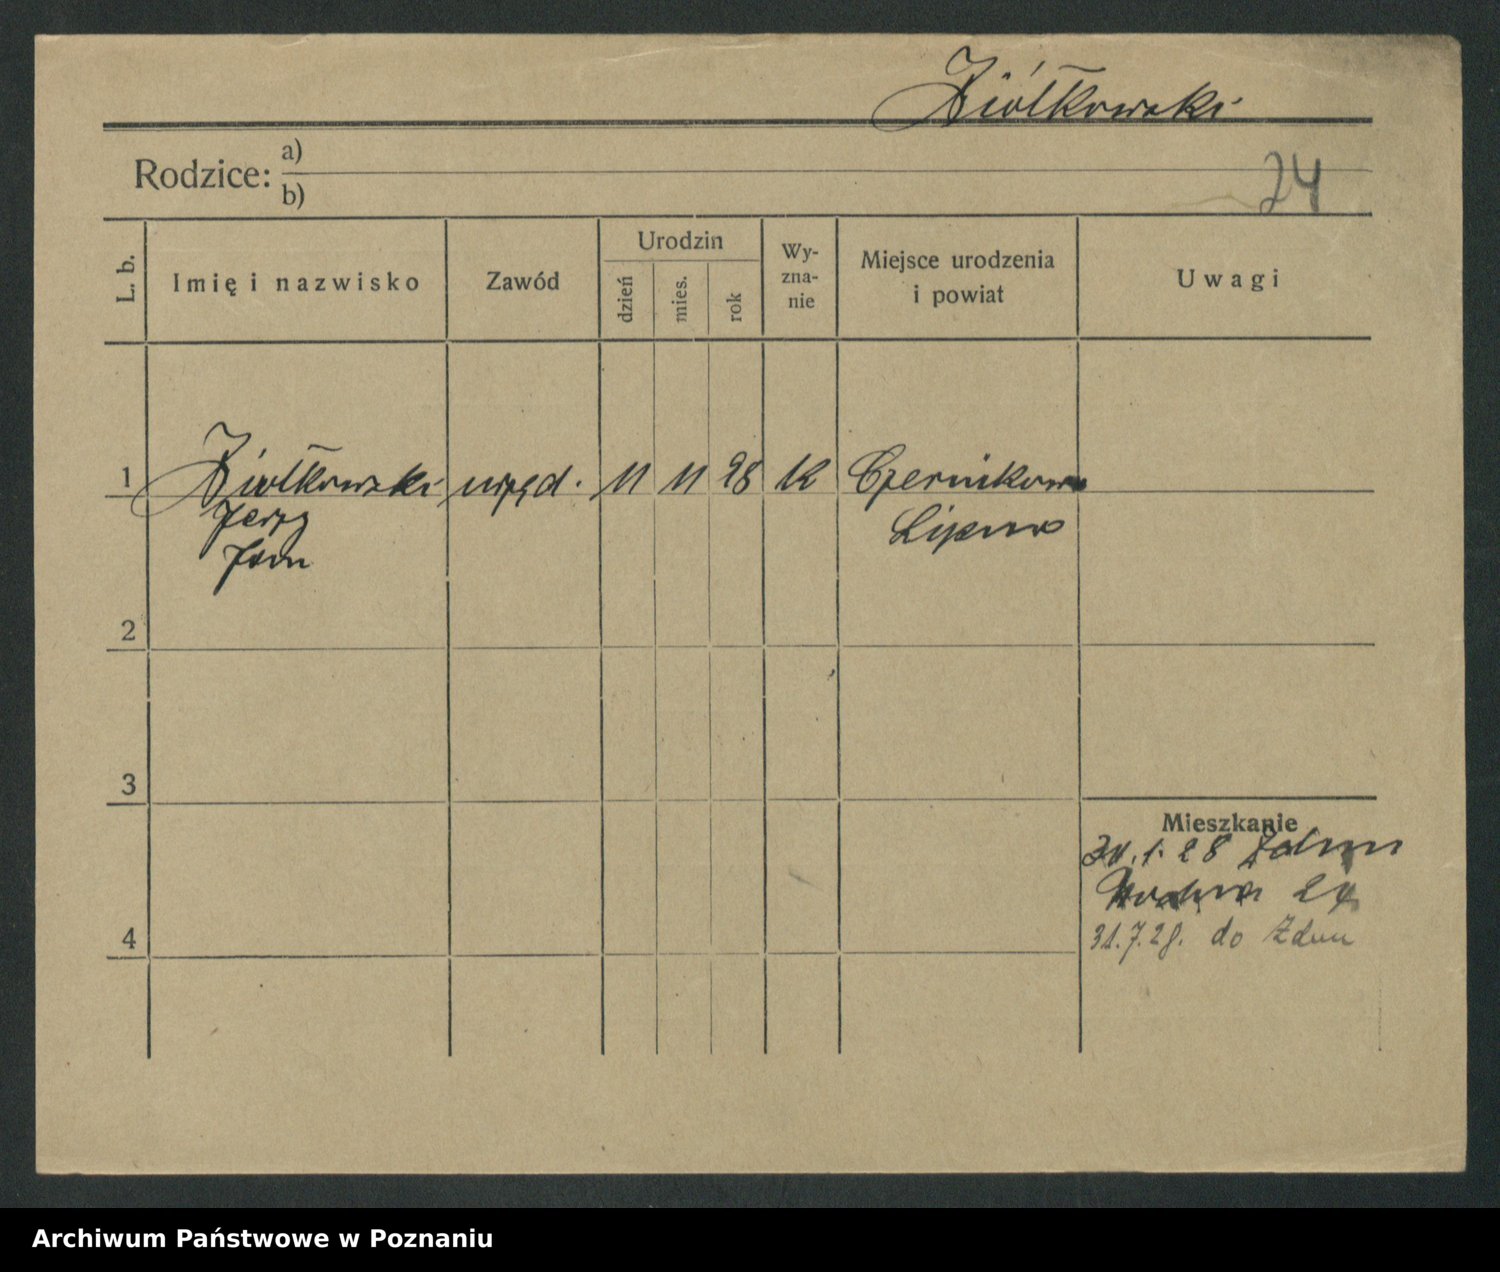 Ziółkowski
Rodzice: a)
b)
24
L. b.
Imię i nazwisko
Zawód
Urodzin
dzień
mies.
rok
Wy-
zna-
nie
Miejsce urodzenia
i powiat
Uwagi
1 Ziołkowski urzęd. 11 11 98 K Czernikowo
Jerzy Lipno
Jan
2
3
Mieszkanie
1. 28
31.7.28. do Zdun
4
Archiwum Państwowe w Poznaniu